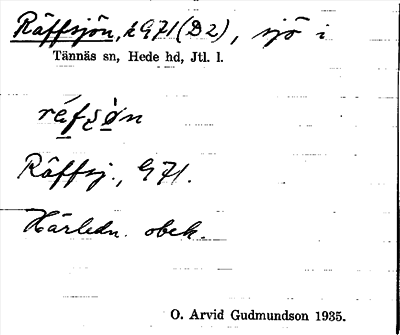 Räffsjön, k G71 (D2), sjö i
Tännäs sn, Hede hd, Jtl. l.
réfʂòn
Räffsj., G71.
Härledn. obek.
O. Arvid Gudmundson 1935.